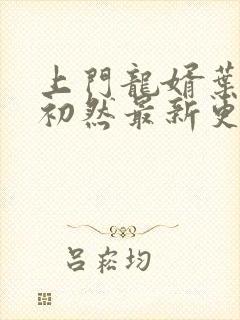 上門龍婿葉
初然最新更
呂崧均